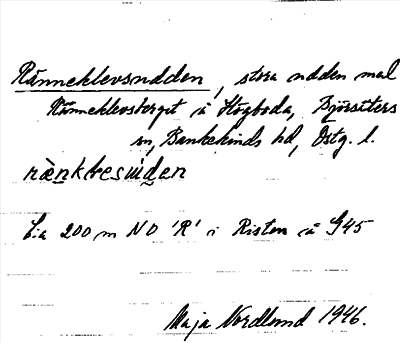 Ränneklevsudden, stora udden med
Ränneklevsberget å Högboda, Björsäters
sn, Bankekinds hd, Östg. l.
C:a 200 m NO 'R' i Risten å G45
Maja Nordlund 1946.